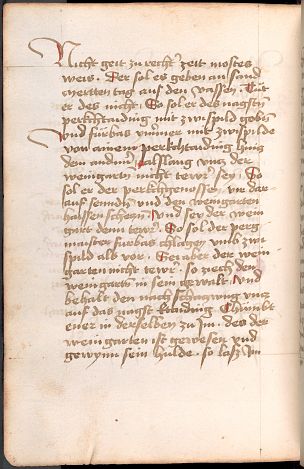 Nicht geit zu rechter zeit mostes
weis. Der sol es geben an sand
merten tag auf den vassen. Tut
er des nicht. So sol er des nagstn
perkchtaiding mit zwispild gebn
und fürbas ymmer mit zwispilde
von ainem perkchtaiding hincz
dem andern. Alsslang uncz der
weingartn nicht tewr sey. So
sol er der perkchgenossen vir dar
auf senndn und den weingarten
haissen schawn. Und sey der wein
gart denn tewr. So sol der perg
maister furbas schlagen umb zwi
spild als vor. Sei aber der wein
garten nicht tewr. so ziech den
weingartn in sein gewalt. Und
behalt den nach schaczung uncz
auf das nagst taiding. Chumbt
ener in derselben zu Im. des der
weingarten ist gewesen und
gewynn sein hulde. so lass Im